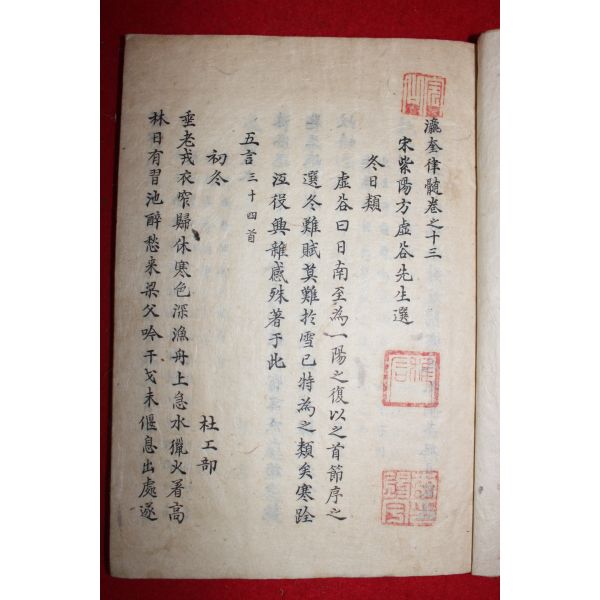 瀛奎律髓卷之十三
宋紫陽方虛谷先生選
冬日類
虛谷曰日南至為一陽之復以之首節序之
選冬難賦莫難於雪已特為之類矣寒
沍役興雖感殊著于此
五言三十四首
初冬
杜工部
垂老戎衣窄歸休寒色深漁舟上急水獵火著高
林日有習池醉愁来梁父吟干戈未偃息出處遂